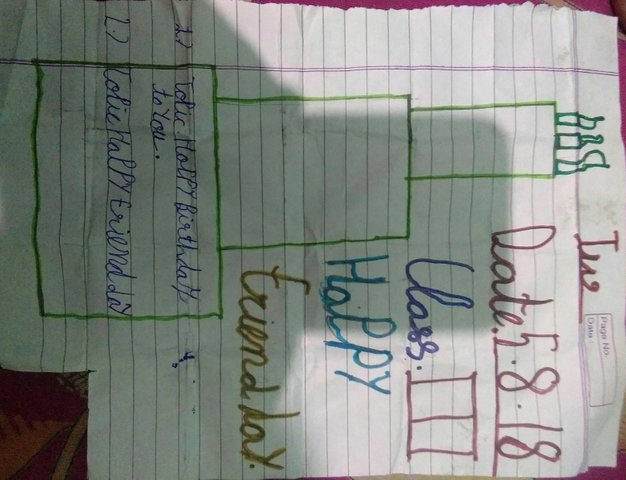 Page No.
Date :
Date. 5.8.18
Class. III
Happy
friend day.
1.) Tolie Happy birthday
to You.
2.) Tolie Happy friend day